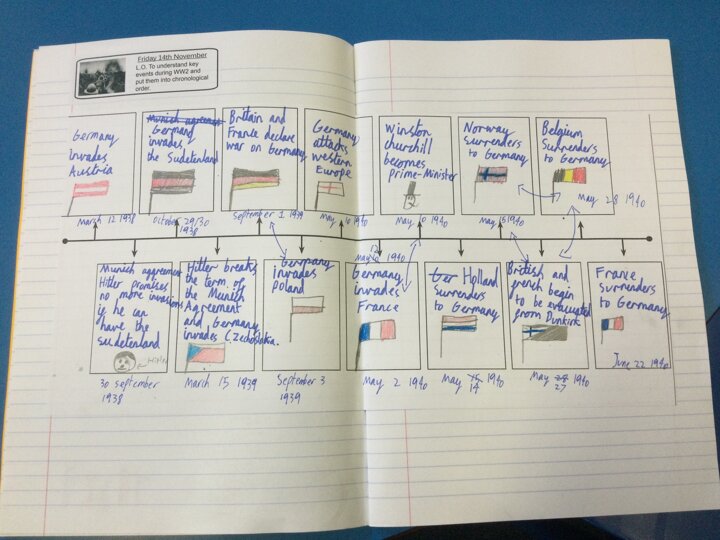 Friday 14th November
L.O. To understand key
events during WW2 and
put them into chronological
order.
Germany
invades
Austria
March 12 1938
Munich agreement
Germany
invades
the Sudetenland
October 29/30
1938
Britain and
France declare
war on Germany
September 1 1939
Germany
attacks
western
Europe
May 10 1940
Winston
churchill
becomes
prime-Minister
May 10 1940
Norway
surrenders
to Germany
May 15 1940
Belgium
surrenders
to Germany
May 28 1940
Munich aggreement
Hitler promises
no more invasions
if he can
have the
sudetenland
Hitler
30 september
1938
Hitler breaks
the term of
the Munich
Agreement
and Germany
invades Czechoslovakia.
March 15 1939
Germany
invades
Poland
September 3
1939
12
May 1940
Germany
invades
France
May 2 1940
Ger Holland
surrenders
to Germany
May 15 1940
14
British and
french begin
to be evacuated
from Dunkirk
May 28 1940
27
France
surrenders
to Germany
June 22 1940